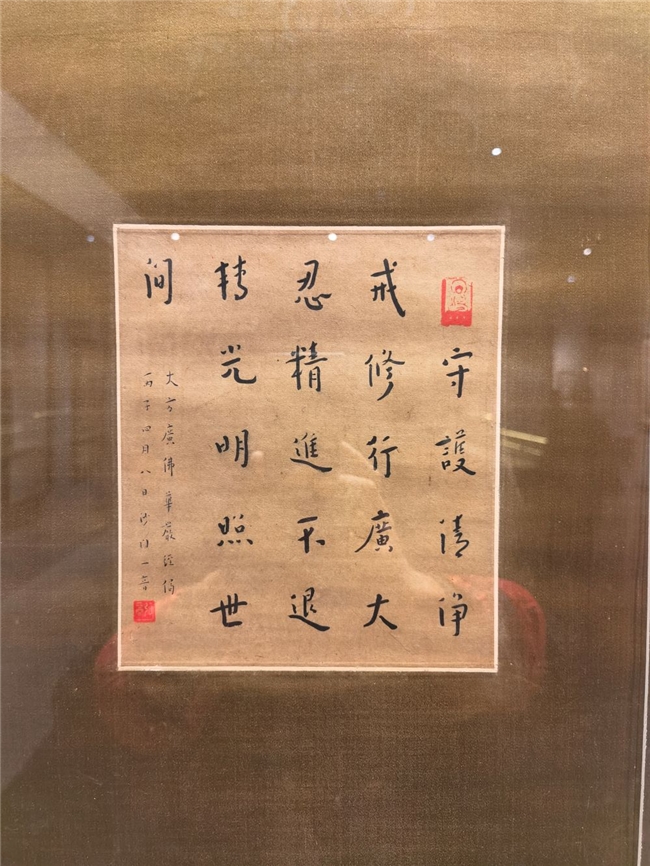 守護清淨
戒修行廣大
忍精進不退
轉光明照世
間
大方廣佛華嚴經偈
丙子四月八日沙門一音